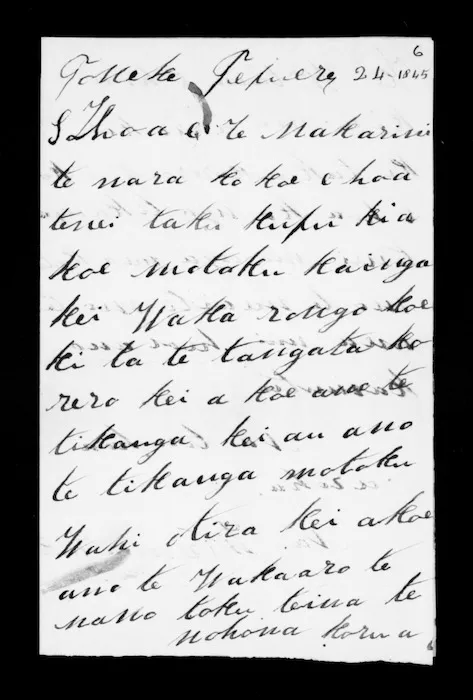 6
Pepuery 24 1845
E Hoa e Te Makarini
te nara ko koe e hoa
tenei taku kupu kia
koe motoku kainga
kei Waka rongo koe
ki ta te tangata ko
rero kei a koe ano te
tikanga kei au ano
te tikanga motoku
Wahi otira kei akoe
ano te Wakaaro te
nano toku teina te
nohona korua